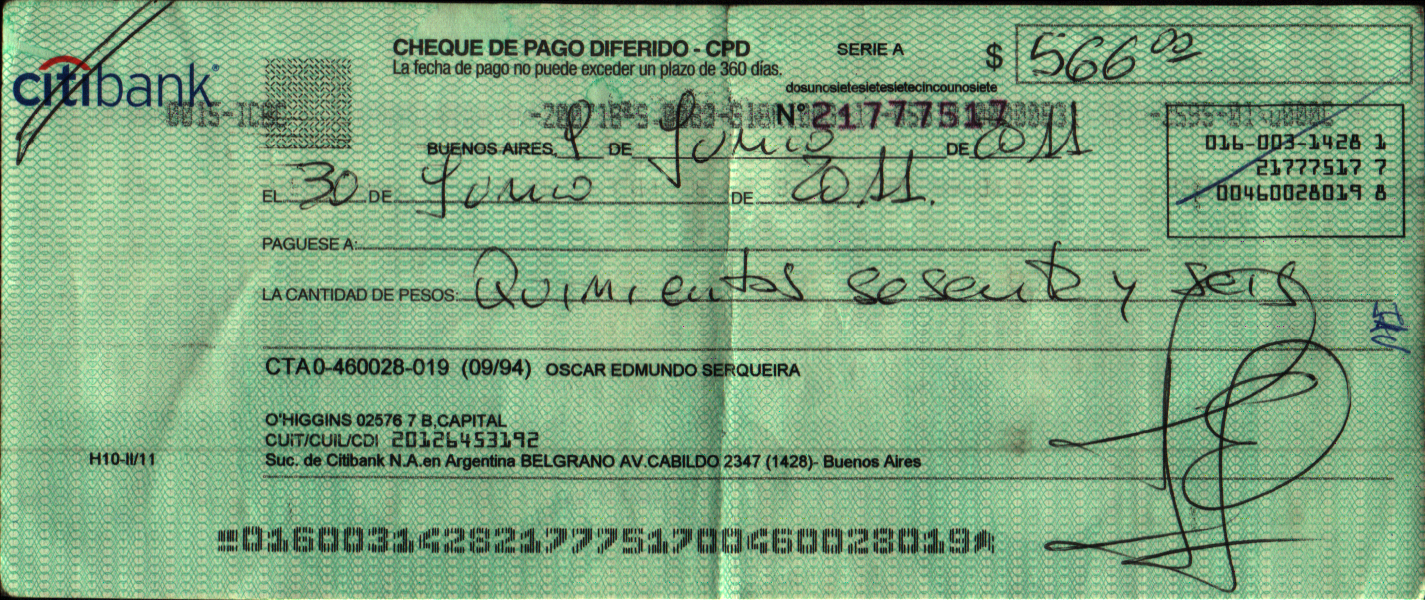 citibank
CHEQUE DE PAGO DIFERIDO - CPD SERIE A $ 566 00
La fecha de pago no puede exceder un plazo de 360 días.
dosunosietesietesietecincounosiete
Nº 21777517
BUENOS AIRES, DE Junio DE 2011
016-003-1428 1
21777517 7
00460028019 8
EL 30 DE Junio DE 2011.
PAGUESE A:
LA CANTIDAD DE PESOS: Quinientos sesenta y seis
CTA 0-460028-019 (09/94) OSCAR EDMUNDO SERQUEIRA
O'HIGGINS 02576 7 B,CAPITAL
CUIT/CUIL/CDI 20126453192
H10-II/11 Suc. de Citibank N.A.en Argentina BELGRANO AV.CABILDO 2347 (1428)- Buenos Aires
01600314282177751700460028019